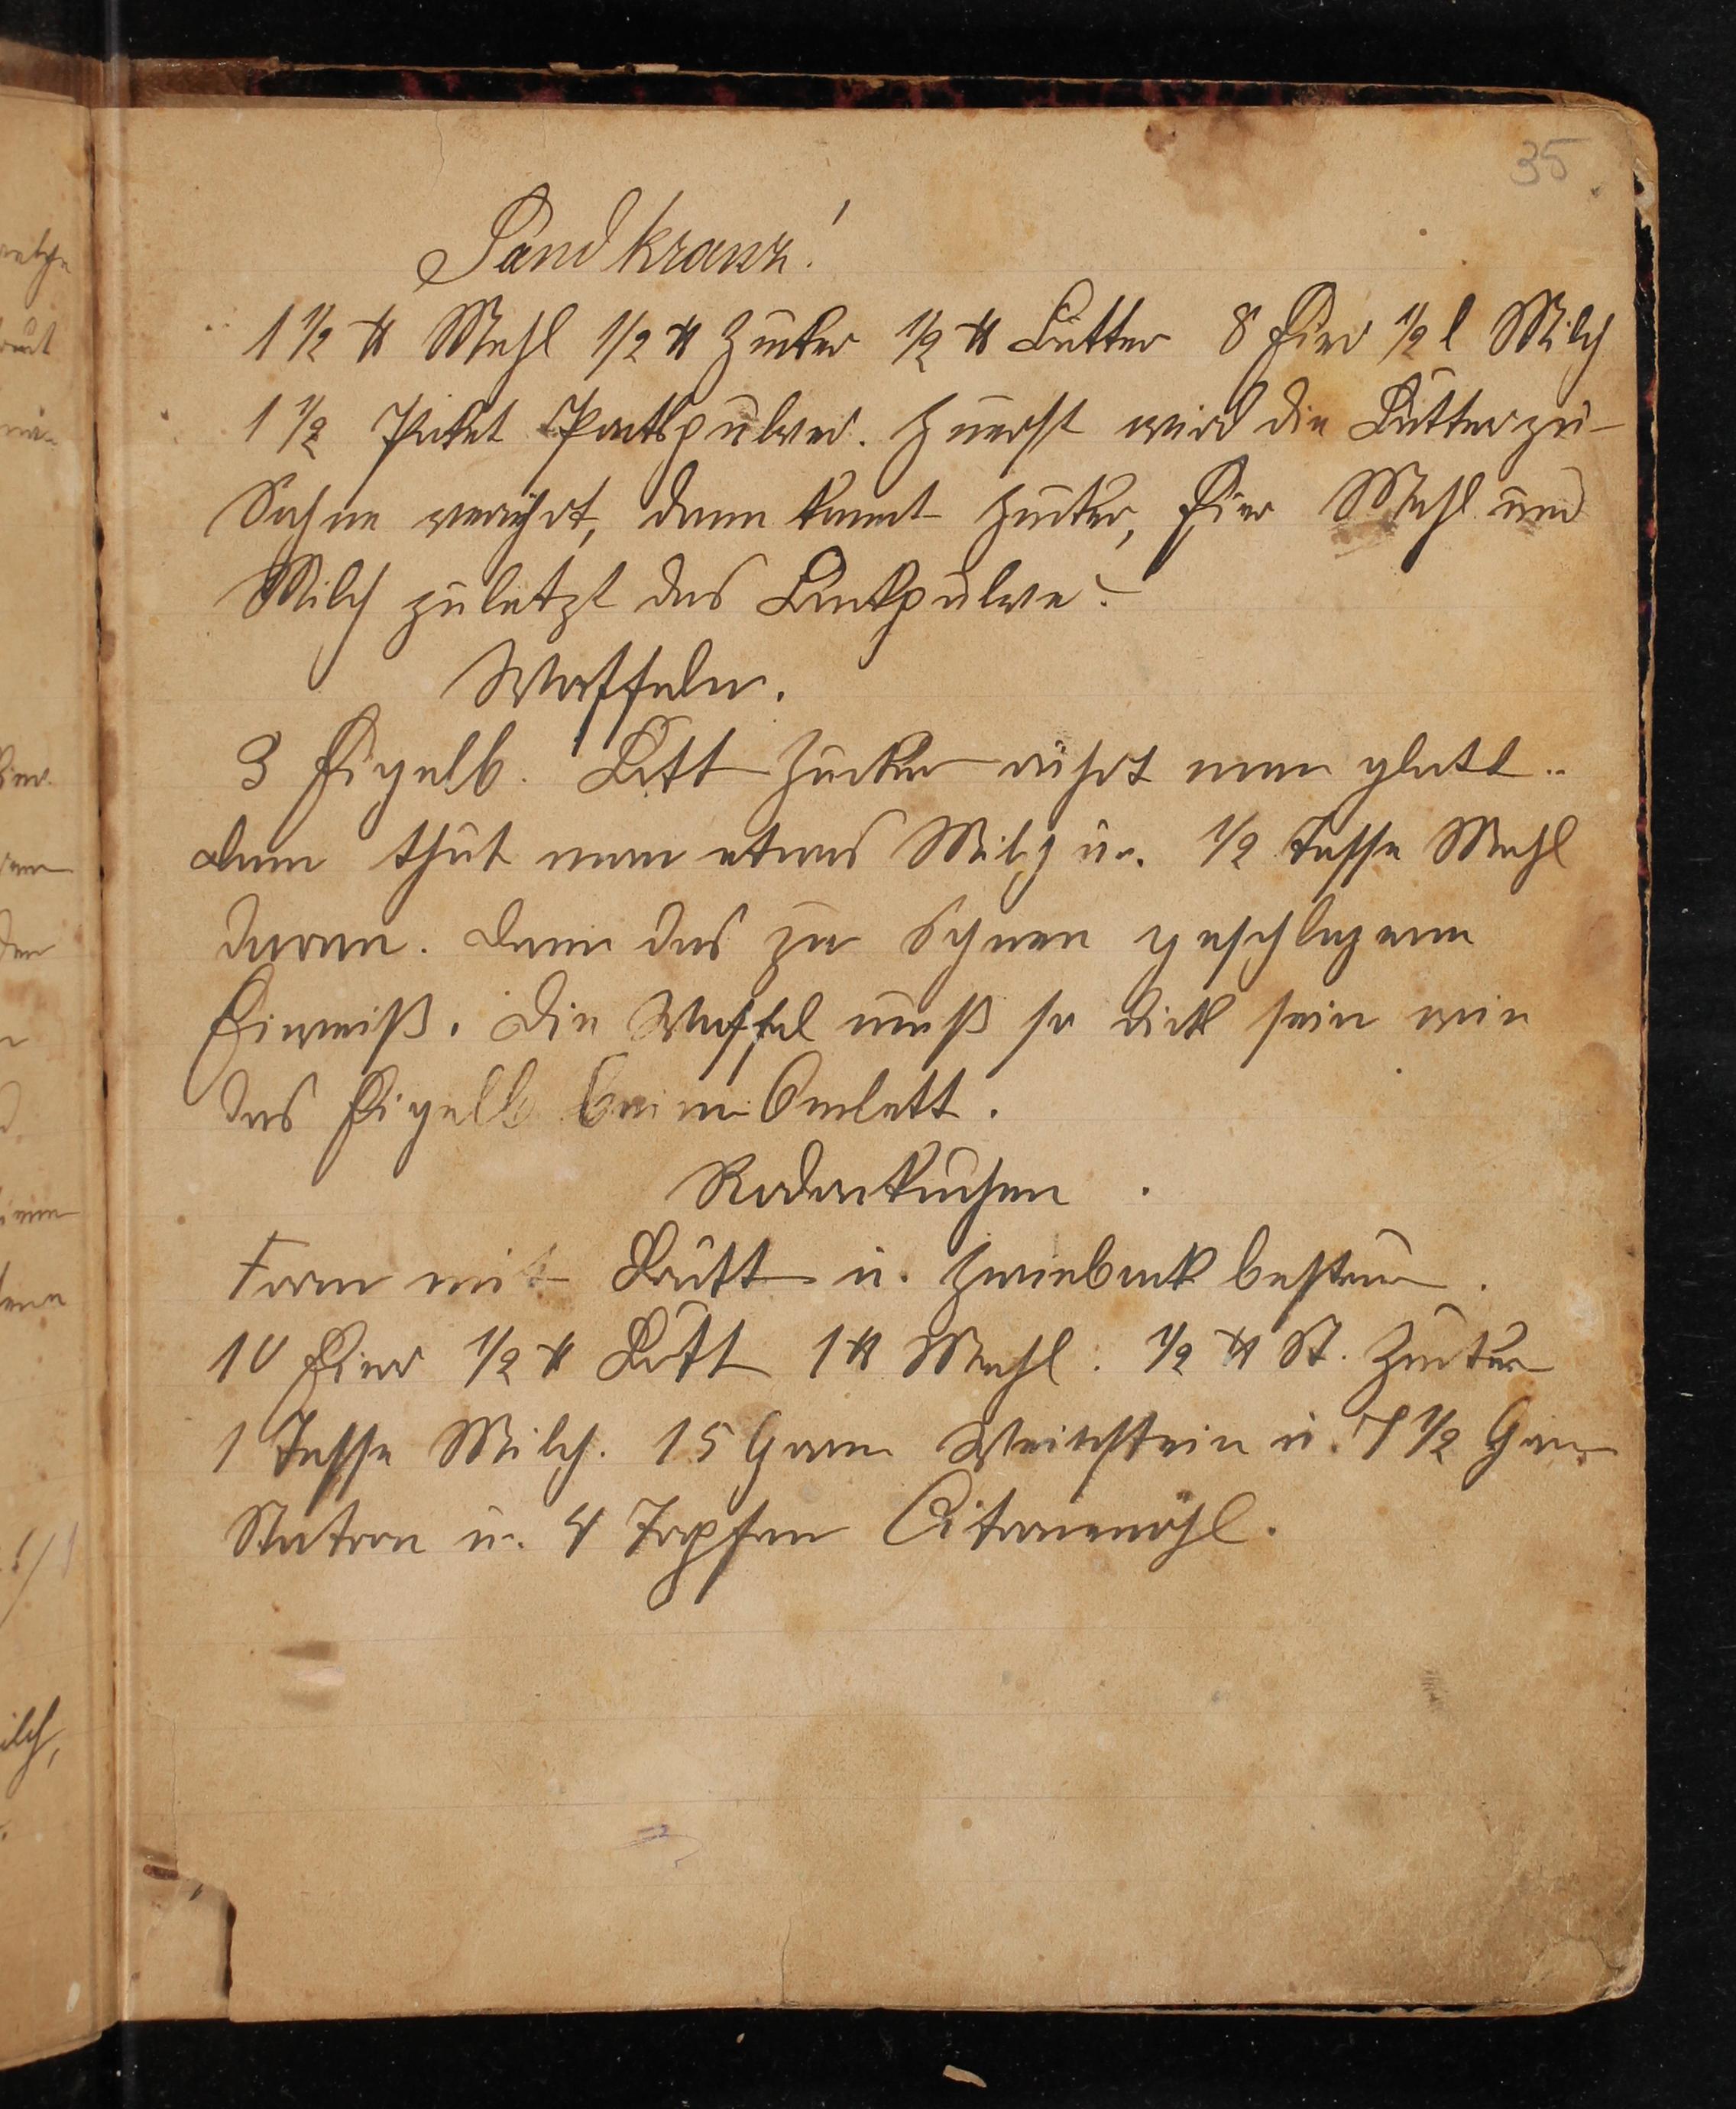 35.
Sandkranz!
1 ½ ℔ Mehl ½ ℔ Zucker ½ ℔ Butter 8 Eier ½ l Milch
1 ½ Paket Backpulver. Zuerst wird die Butter zu-
Sahne gerührt, dann kommt Zucker, Eier Mehl und
Milch zuletzt das Backpulve.
Waffeln.
3 Eigelb. Butt Zucker rührt man glatt..
dann thut man etwas Milch u. ½ Tasse Mehl
daran. dann das zu Schnee geschlagene
Eiweiß. Die Waffel muß so dick sein wie
das Eigelb beim Omlett.
Radonkuchen.
Form mit Butt u. Zwieback bestreu.
10 Eier ½ ℔ Butt 1 ℔ Mehl. ½ ℔ St. Zucker
1 Tasse Milch. 15 Gram Weinstein u. 7 ½ Gram
Natron u. 4 Tropfen Citronenöhl.